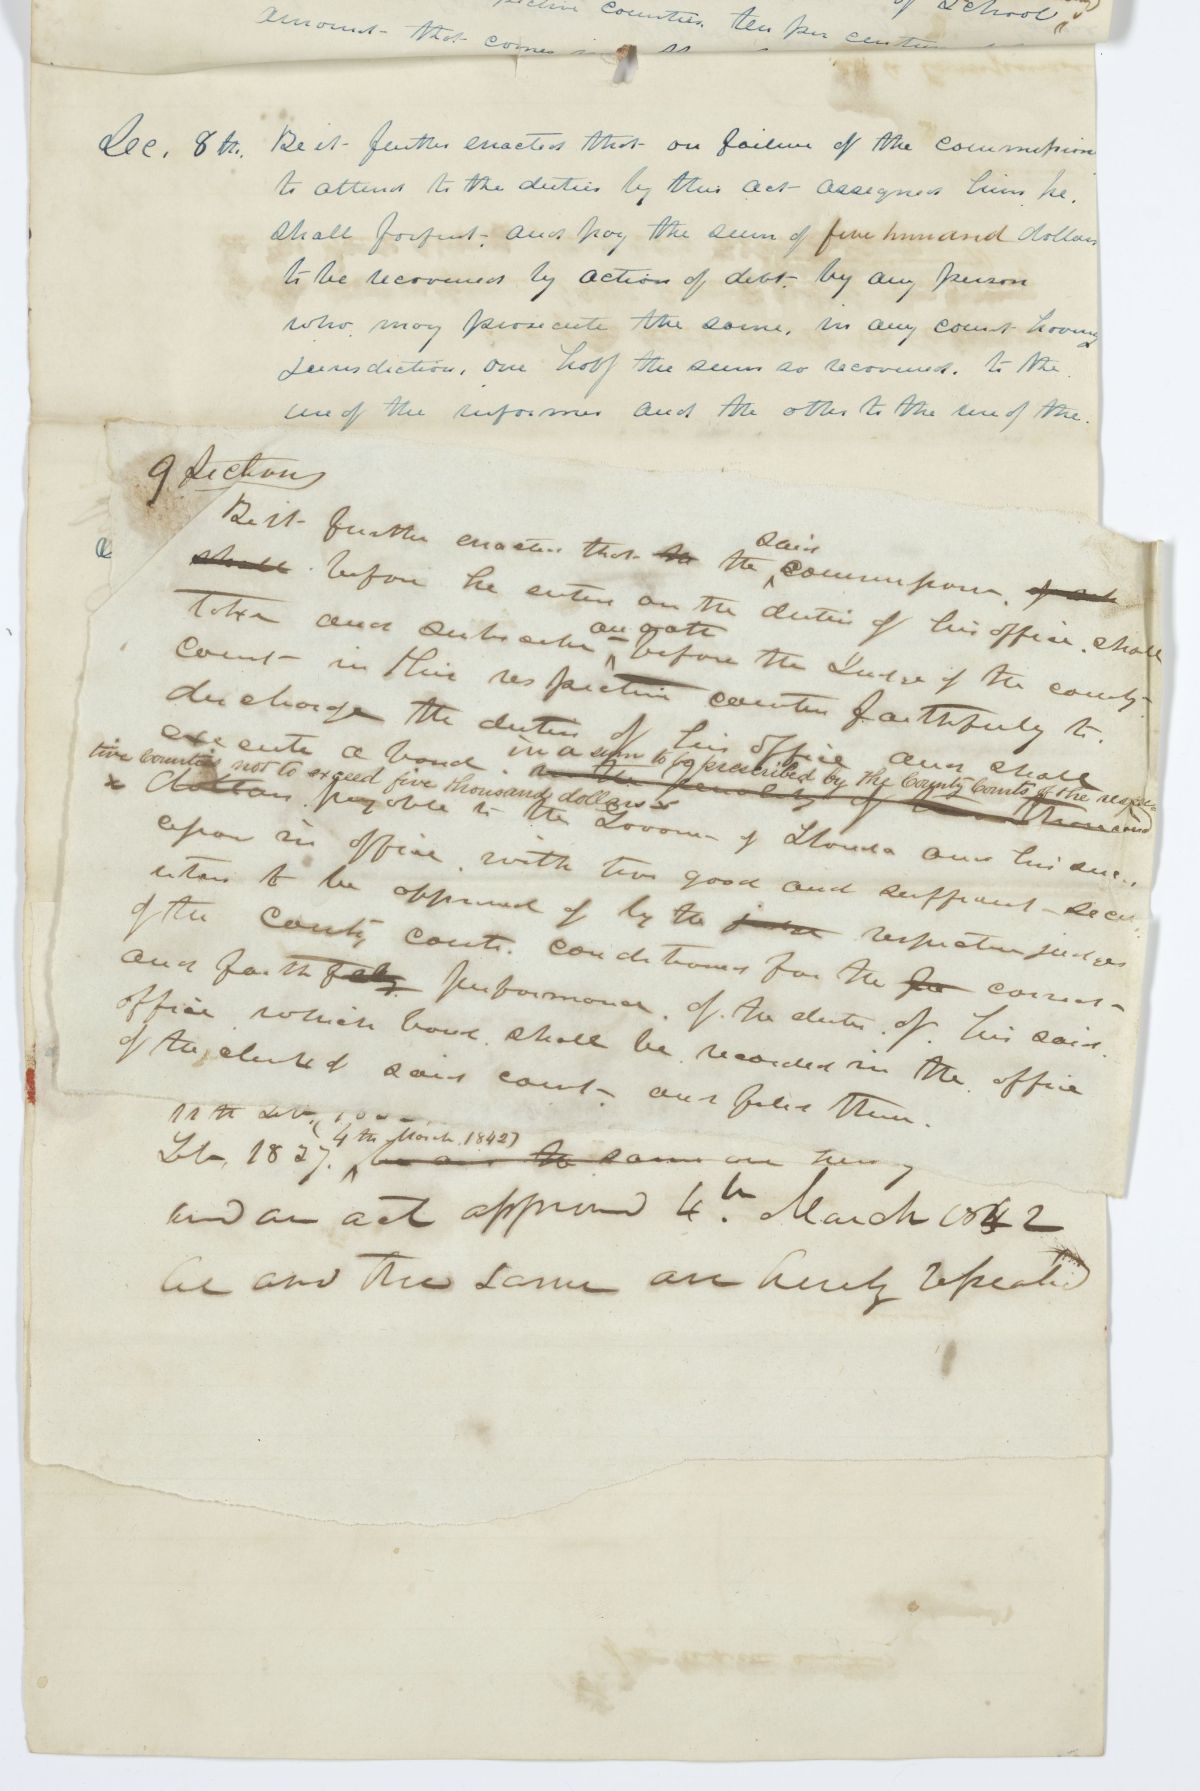 pective counties ten per centum
of School
amount that comes
Sec. 8th. Be it further enacted that on failure of the commissioner
to attend to the duties by this act assigned him, he
shall forfeit, and pay the sum of five hundred dollars
to be recovered by action of debt by any person
who may prosecute the same, in any court having
jurisdiction, one half the sum so recovered, to the
use of the informer and the other to the use of the
9 Sections
Be it further enacted that to the said commissioner, of sch
shall before he enters on the duties of his office, shall
take and subscribe an oath before the Judge of the county
court in their respective counties faithfully to
discharge the duties of his office and shall
execute a bond in a sum to be prescribed by the County Courts of the respec-
tive counties not to exceed five thousand dollars x in the penalty of thousand
x dollars payable to the Governor of Florida and his succ-
essor in office, with two good and sufficient secu-
rities to be approved of by the respective judges
of the county courts. conditioned for the correct
and faithfuly performance, of the duties, of his said
office, which bond shall be recorded in the office
of the clerk of said court and filed there.
11th Feb.
Feb. 1837. (4th March 1842) be and the same are hereby
and an act approved 4th. March 1842
be and the same are hereby repealed